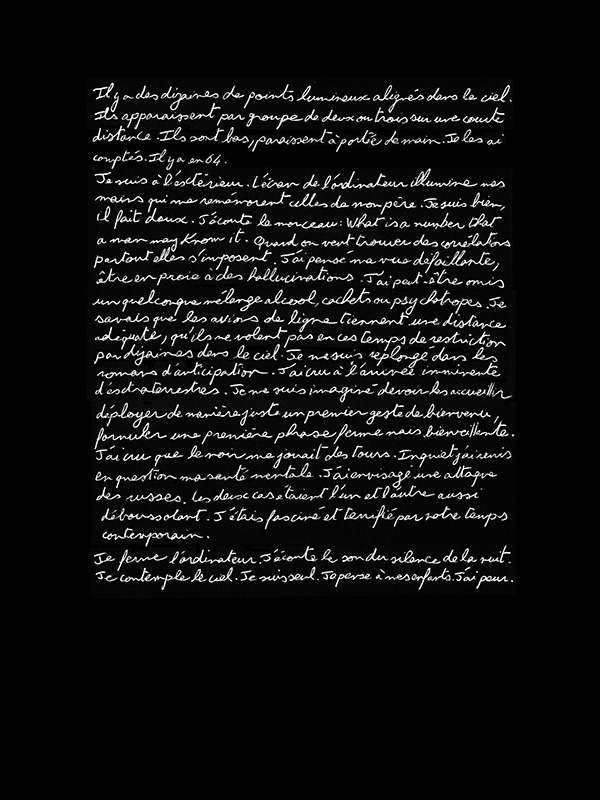 Il y a des dizaines de points lumineux alignés dans le ciel.
Ils apparaissent par groupe de deux ou trois sur une courte
distance. Ils sont bas, paraissent à portée de main. Je les ai
comptés. Il y a en 64.
Je suis à l'éxtérieur. L'écran de l'ordinateur illumine mes
mains qui me remémorent celles de mon père. Je suis bien,
il fait doux. J'écoute le morceau: What is a number that
a man may know it. Quand on veut trouver des corrélations
partout elles s'imposent. J'ai pensé ma vue défaillante,
être en proie à des hallucinations. J'ai peut-être omis
un quelconque mélange alcool, cachets ou psychotropes. Je
savais que les avions de ligne tiennent une distance
adéquate, qu'ils ne volent pas en ces temps de restriction
par dizaines dans le ciel. Je me suis replongé dans les
romans d'anticipation. J'ai cru à l'arrivée imminente
d'éxtraterrestres. Je me suis imaginé devoir les accueillir
déployer de manière juste un premier geste de bienvenu,
formuler une première phrase ferme mais bienveillante.
J'ai cru que le noir me jouait des tours. Inquiet j'ai remis
en question ma santé mentale. J'ai envisagé une attaque
des russes. Les deux cas étaient l'un et l'autre aussi
déboussolant. J'étais fasciné et terrifié par notre temps
contemporain.
Je ferme l'ordinateur. J'écoute le son du silence de la nuit.
Je contemple le ciel. Je suis seul. Je pense à mes enfants. J'ai peur.